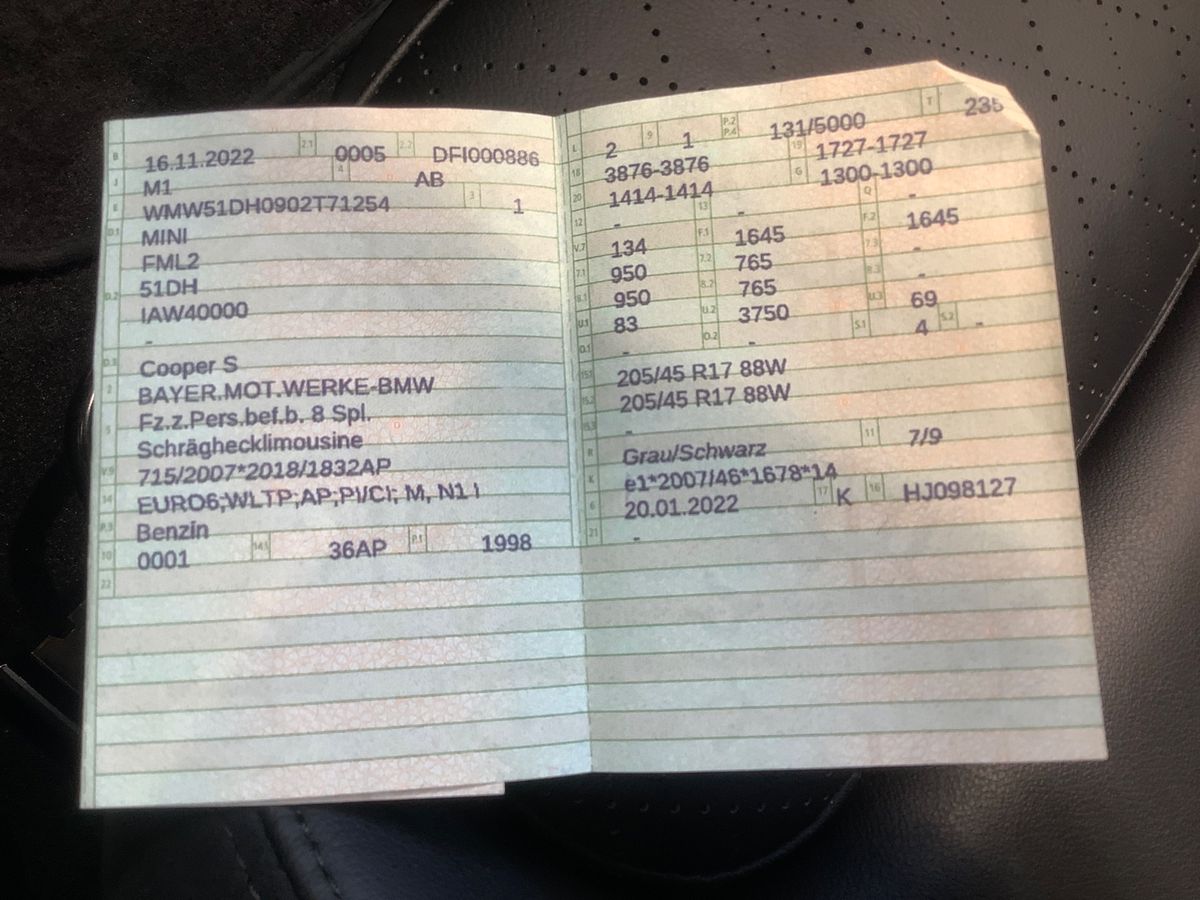 B 16.11.2022 2.1 0005 2.2 DFI000886
J M1 4 AB
E WMW51DH0902T71254 3 1
D.1 MINI
FML2
D.2 51DH
IAW40000
-
D.3 Cooper S
2 BAYER.MOT.WERKE-BMW
5 Fz.z.Pers.bef.b. 8 Spl.
Schräghecklimousine
V.9 715/2007*2018/1832AP
14 EURO6;WLTP;AP;PI/CI; M, N1 I
P.3 Benzin
10 0001 14.1 36AP P.1 1998
22
L 2 9 1 P.2 P.4 131/5000 T 235
18 3876-3876 19 1727-1727
20 1414-1414 G 1300-1300
12 - 13 - Q -
V.7 134 F.1 1645 F.2 1645
7.1 950 7.2 765 7.3 -
8.1 950 8.2 765 8.3 -
U.1 83 U.2 3750 U.3 69
O.1 - O.2 - S.1 4 S.2 -
15.1 205/45 R17 88W
15.2 205/45 R17 88W
15.3 -
R Grau/Schwarz 11 7/9
K e1*2007/46*1678*14
6 20.01.2022 17 K 16 HJ098127
21 -